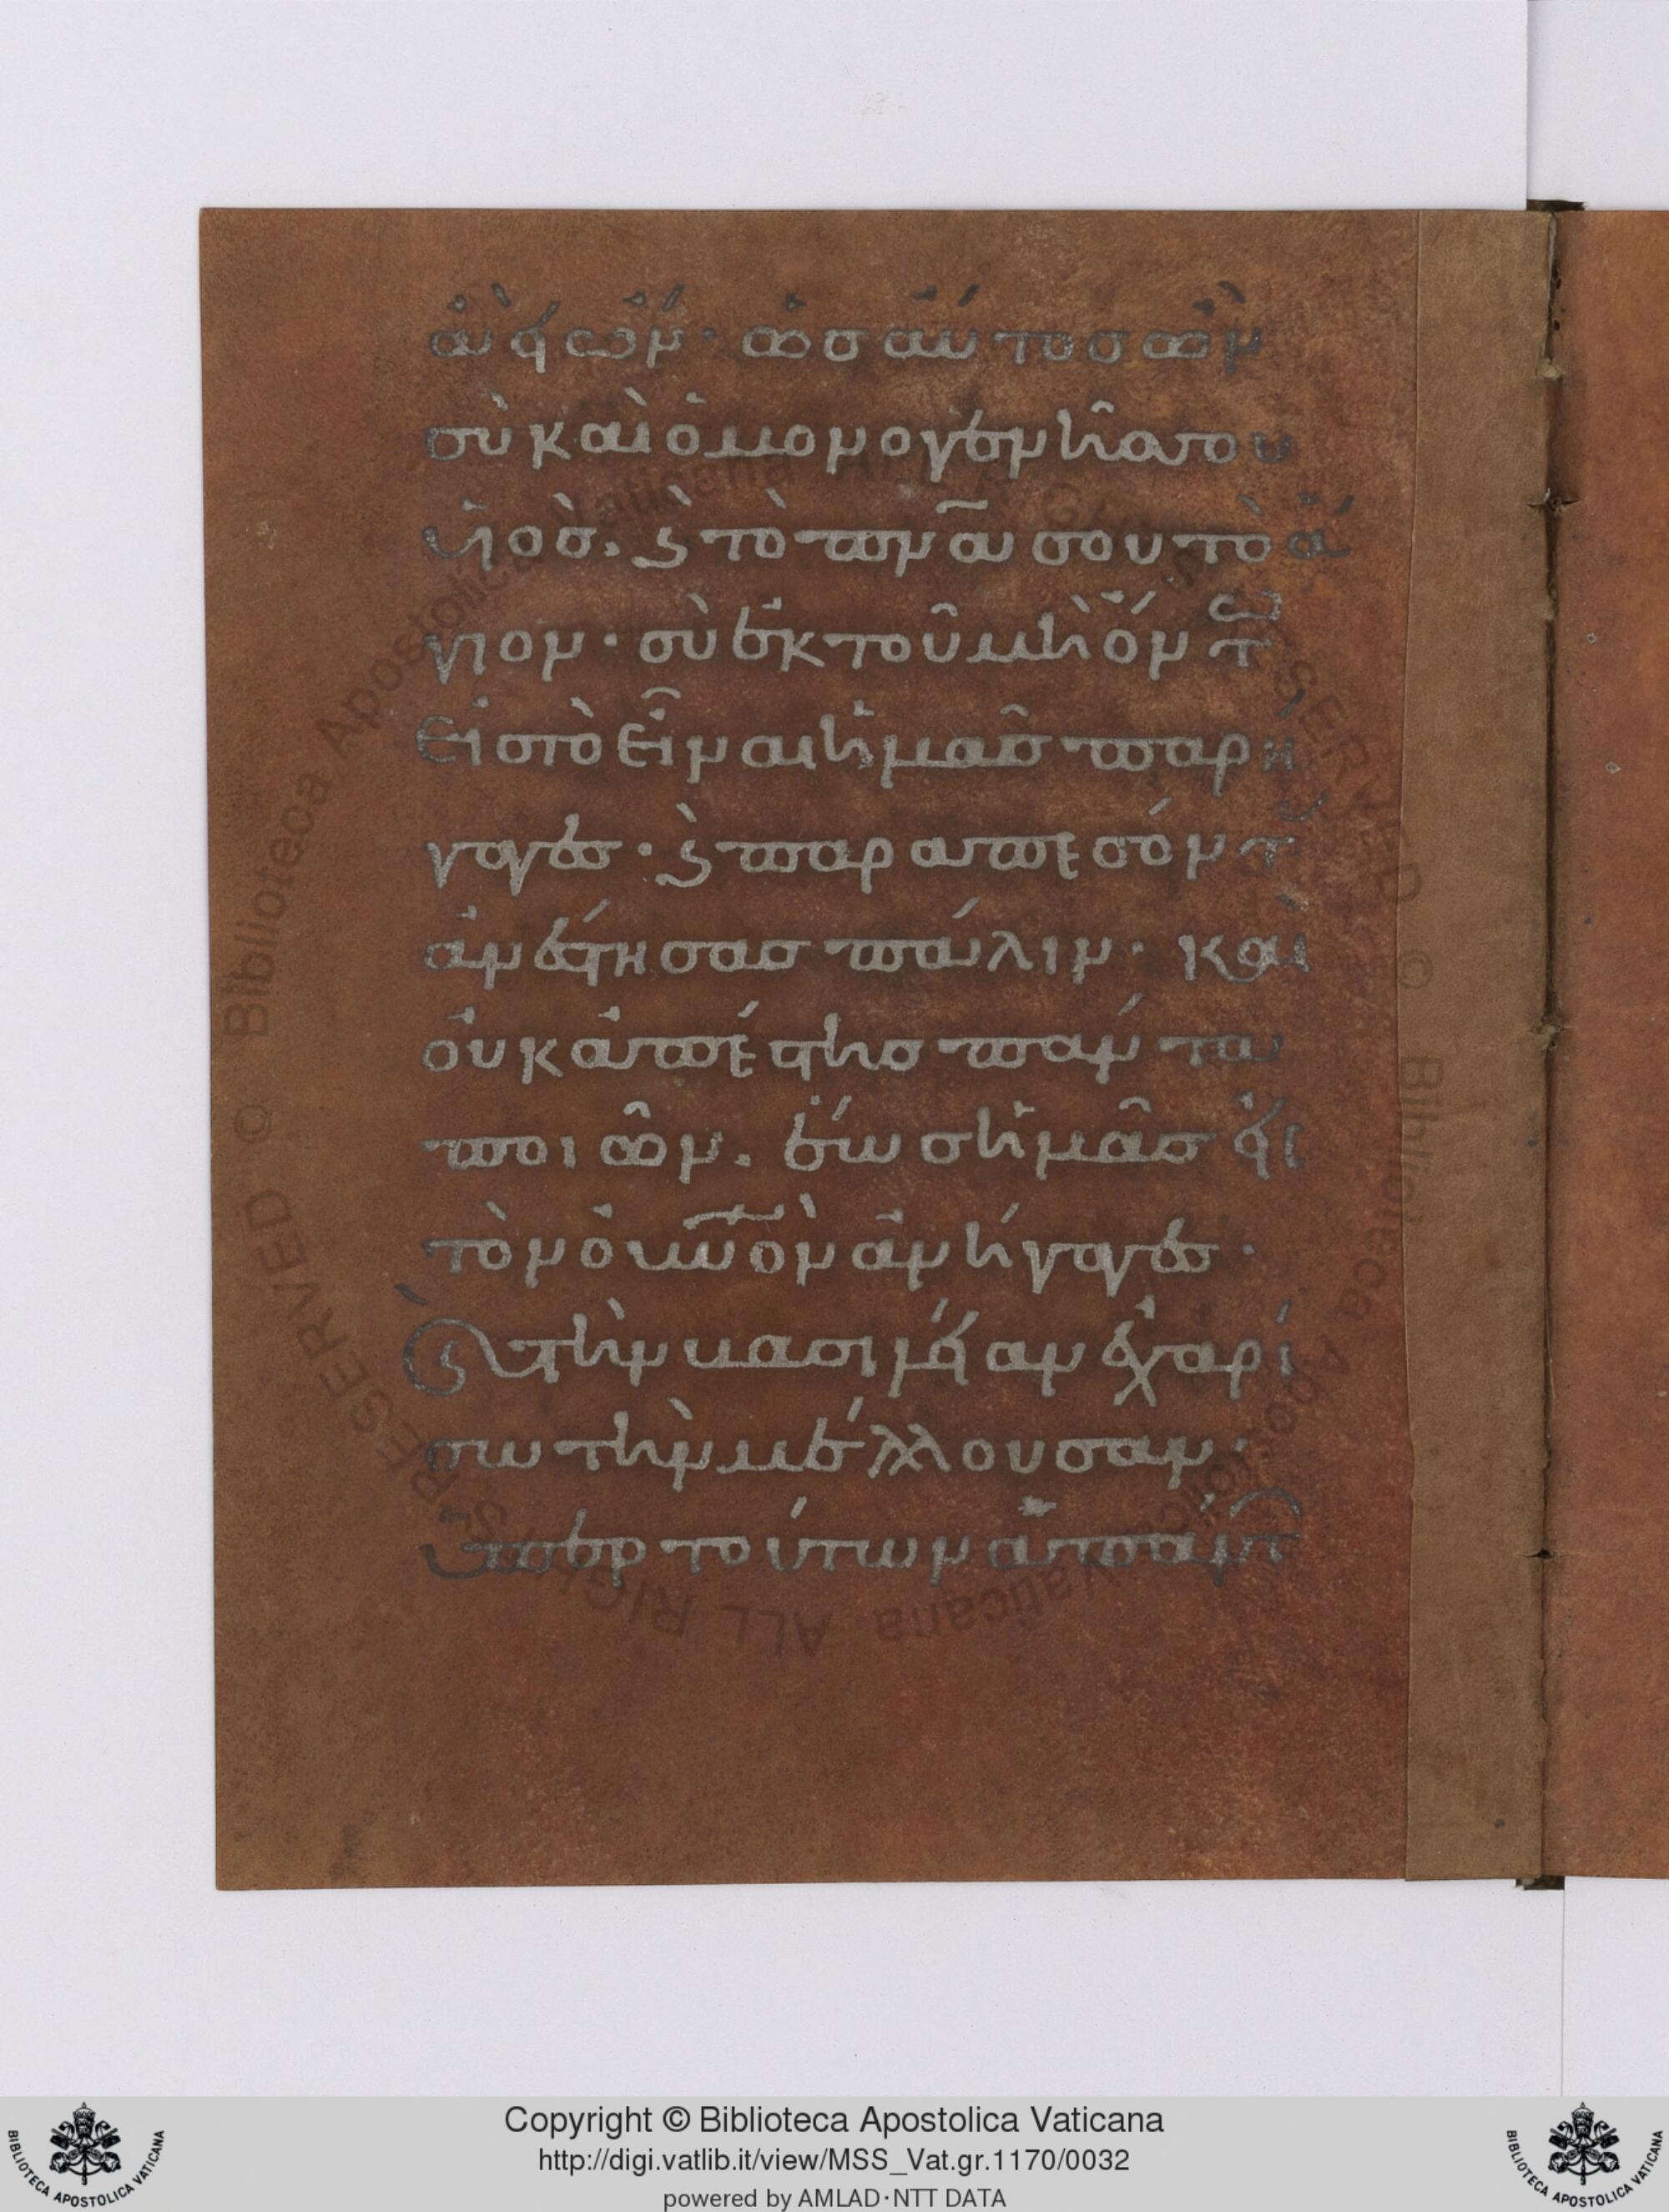 ἀεὶ ὤν· ὡσαύτως ὢν
σὺ καὶ ὁ μονογενής σου
υἱός. ϗ τὸ πνᾶ σου τὸ ἅ
γιον· σὺ ἐκ τοῦ μὴ ὄντ
εἰς τὸ εἶναι ἡμᾶς παρή
γαγες· ϗ παραπεσόντ
ἀνέστησας πάλιν· καὶ
οὐκ ἀπέστης πάντα
ποιῶν. ἕως ἡμᾶς εἰς
τὸν οὐνον ἀνήγαγες·
ϗ τὴν βασιλείαν ἐχαρί
σω τὴν μέλλουσαν·
Ὑπὲρ τούτων ἁπάντ
Copyright © Biblioteca Apostolica Vaticana
http://digi.vatlib.it/view/MSS_Vat.gr.1170/0032
powered by AMLAD·NTT DATA
BIBLIOTECA APOSTOLICA VATICANA
BIBLIOTECA APOSTOLICA VATICANA